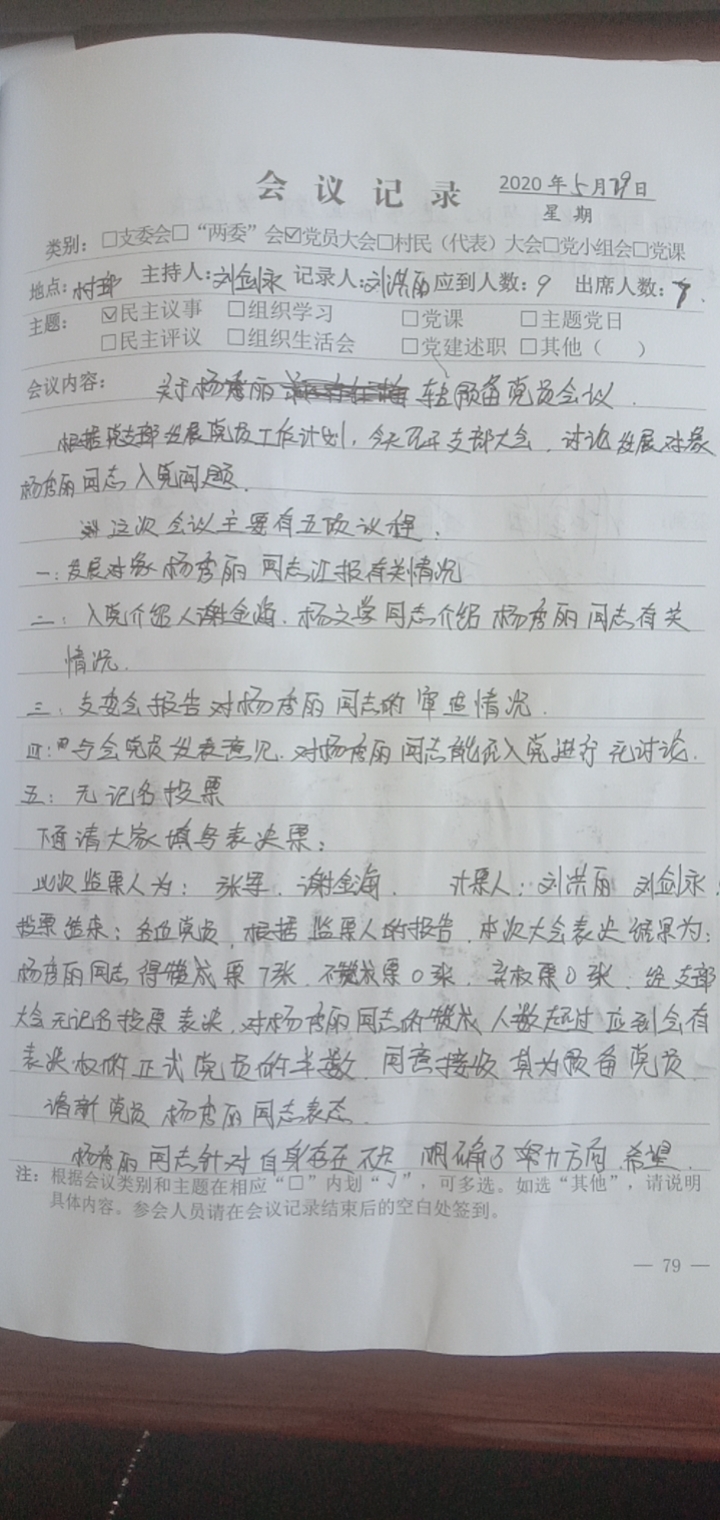 会议记录 2020年5月29日
星期
类别：□支委会□“两委”会☑党员大会□村民（代表）大会□党小组会□党课
地点：村部 主持人：刘剑永 记录人：刘洪丽 应到人数：9 出席人数：7
主题：☑民主议事 □组织学习 □党课 □主题党日
□民主评议 □组织生活会 □党建述职 □其他（ ）
会议内容： 关于杨秀丽 转预备党员会议.
根据党支部发展党员工作计划，今天召开支部大会，讨论发展对象
杨秀丽同志入党问题.
这次会议主要有五项议程.
一：发展对象杨秀丽同志汇报有关情况
二：入党介绍人谢金海、杨文学同志介绍杨秀丽同志有关
情况.
三：支委会报告对杨秀丽同志的审查情况.
四：与会党员发表意见.对杨秀丽同志能否入党进行充讨论.
五：无记名投票
下面请大家填写表决票：
此次监票人为：张军、谢金海. 计票人：刘洪丽 刘剑永.
投票结束：各位党员，根据监票人的报告，本次大会表决结果为：
杨秀丽同志得赞成票7张，不赞成票0张，弃权票0张，经支部
大会无记名投票表决，对杨秀丽同志的赞成人数超过应到会有
表决权的正式党员的半数，同意接收其为预备党员
请新党员杨秀丽同志表态.
杨秀丽同志针对自身存在不足 明确了努力方向 希望
注：根据会议类别和主题在相应“□”内划“√”，可多选。如选“其他”，请说明
具体内容。参会人员请在会议记录结束后的空白处签到。
— 79 —